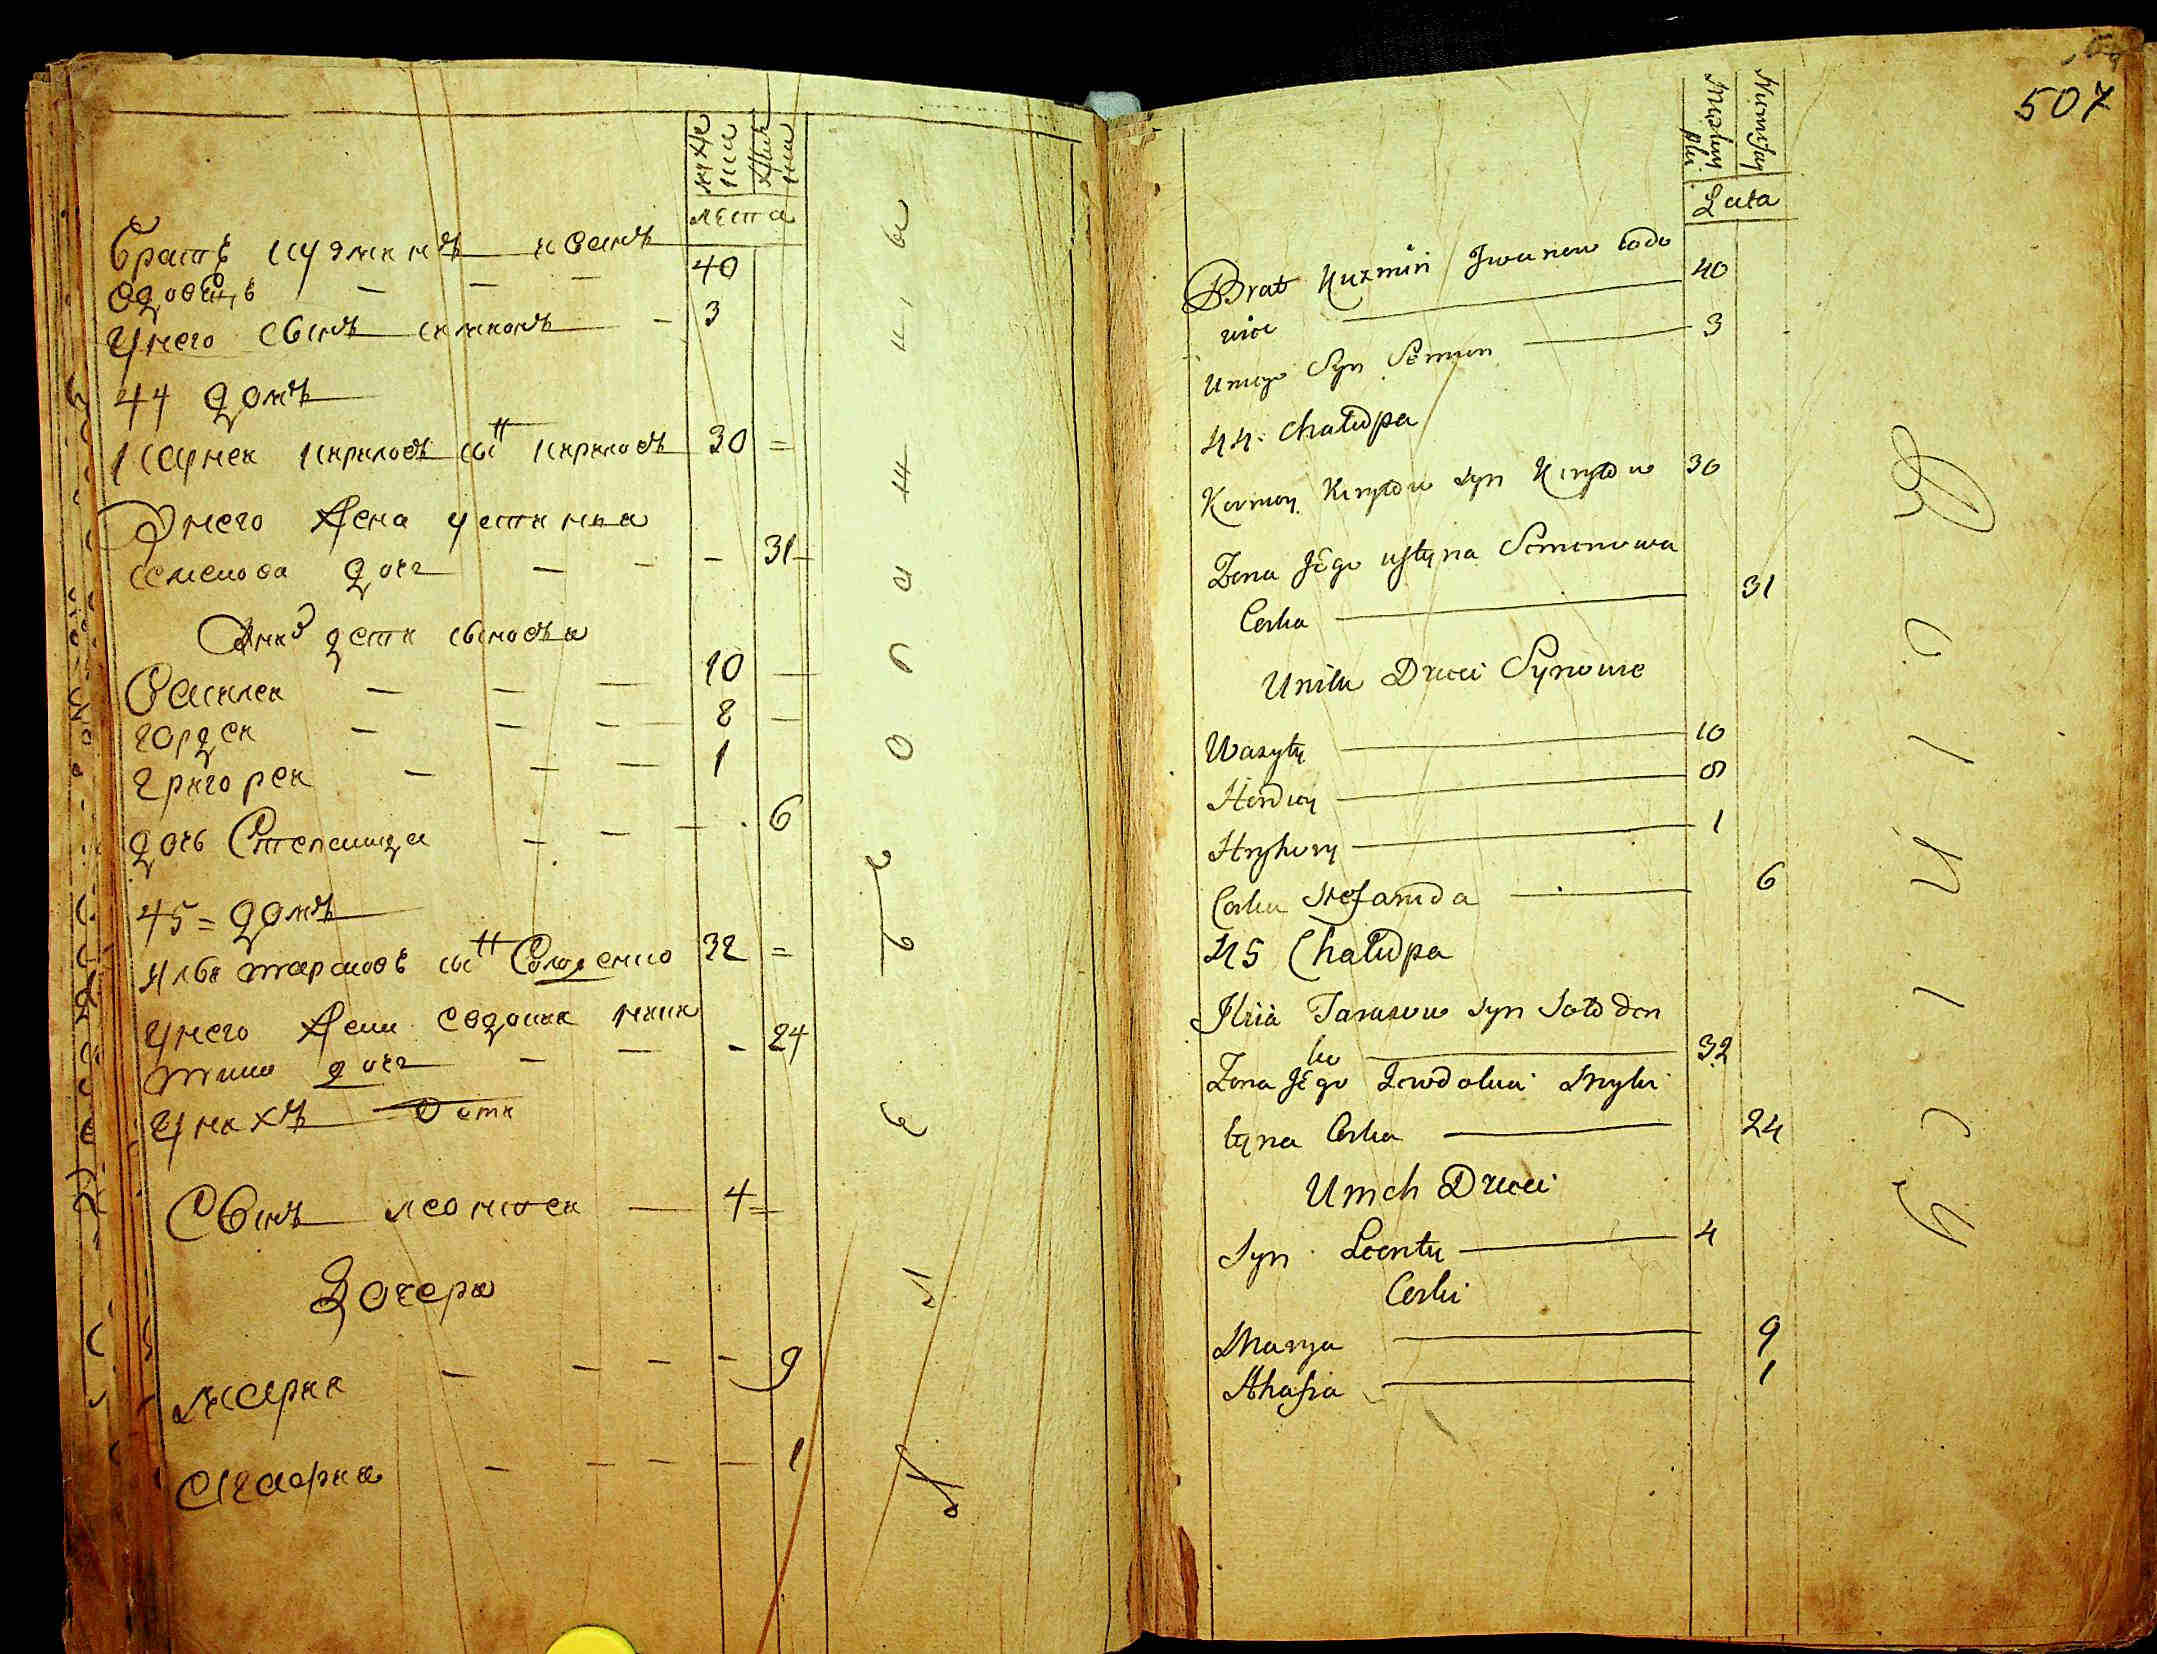 мужеска
женска
лета
братъ кузминъ ивановъ 40
вдовецъ
у него сынъ симионъ 3
44 домъ
карней кириловъ сынъ кириловъ 30 =
У него жена устиния
семенова дочь 31
У них дети сыновья
Василей 10
гордей 8
григорей 1
дочь Степанида 6
45 = домъ
илья тарасовъ сынъ Солоденко 32 =
у него жена евдокия мики
тина дочь 24
у нихъ дети
Сынъ леонтей 4 =
Дочери
мария 9
агафия 1
507
Lata
Brat Kuzmin Iwanow wdo 40
wiec
Uniego Syn Semion 3
44. Chałupa
Korniey Kiryłow syn Kiryłow 30
Żona Jego ustyna Semenowa
Corka 31
Unich Dzieci Synowie
Wasyly 10
Hordiey 8
Hryhory 1
Corka Stefanida 6
45 Chałupa
Ilia Tarasow syn Sołoden
ko 32
Żona Jego Jewdokia Myki
tyna Corka 24
Unich Dzieci
Syn Leonty 4
Corki
Marya 9
Ahafia 1